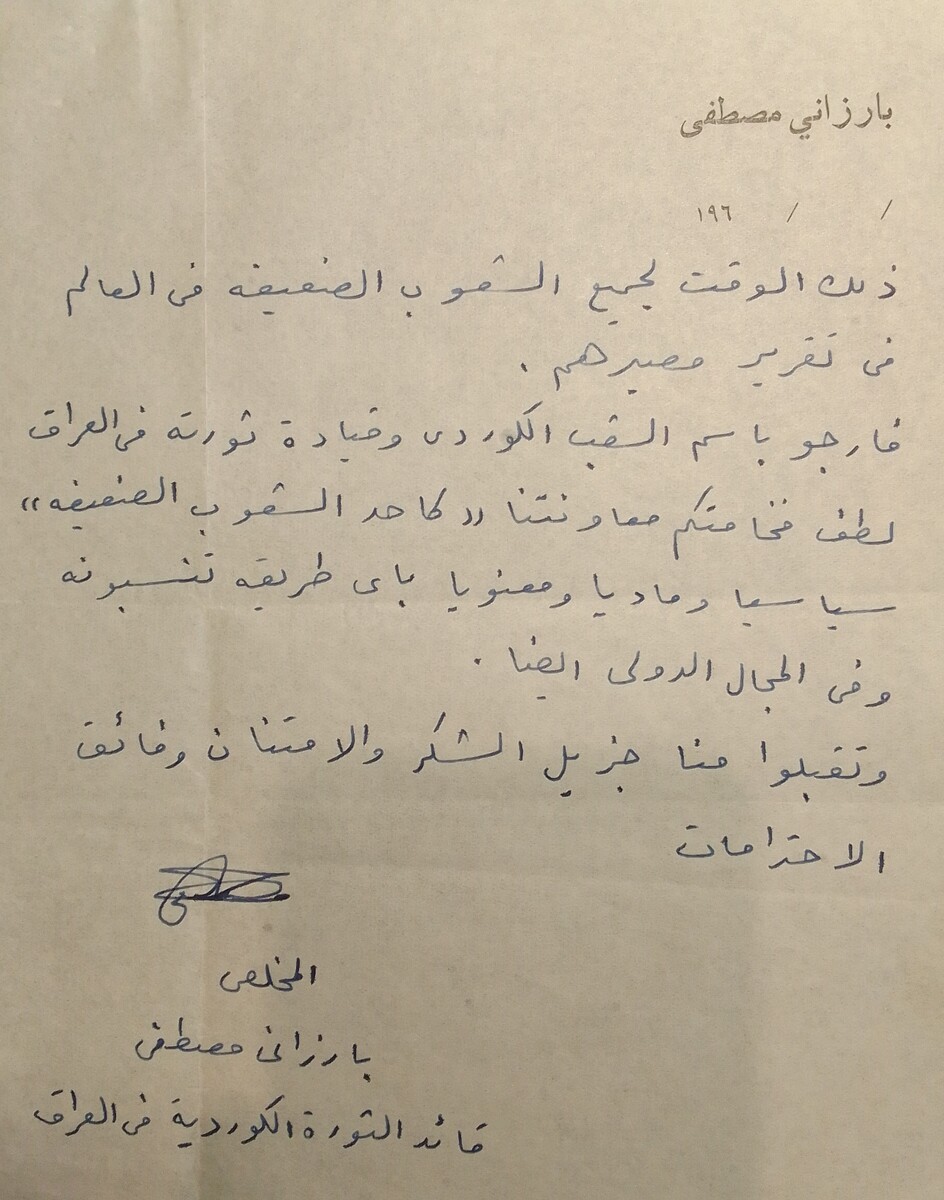 بارزاني مصطفى
/ / ١٩٦
ذلك الوقت لجميع الشعوب الضعيفه فى العالم
فى تقرير مصيرهم .
فارجو باسم الشعب الكوردى وقيادة ثورته فى العراق
لطف فخامتكم معاونتنا «كاحد الشعوب الضعيفه»
سياسيا وماديا ومعنويا باى طريقه تنسبونه
وفى المجال الدولى ايضا .
وتقبلوا منا جزيل الشكر والامتنان وفائق
الاحترامات
المخلص
بارزانى مصطفى
قائد الثورة الكوردية فى العراق